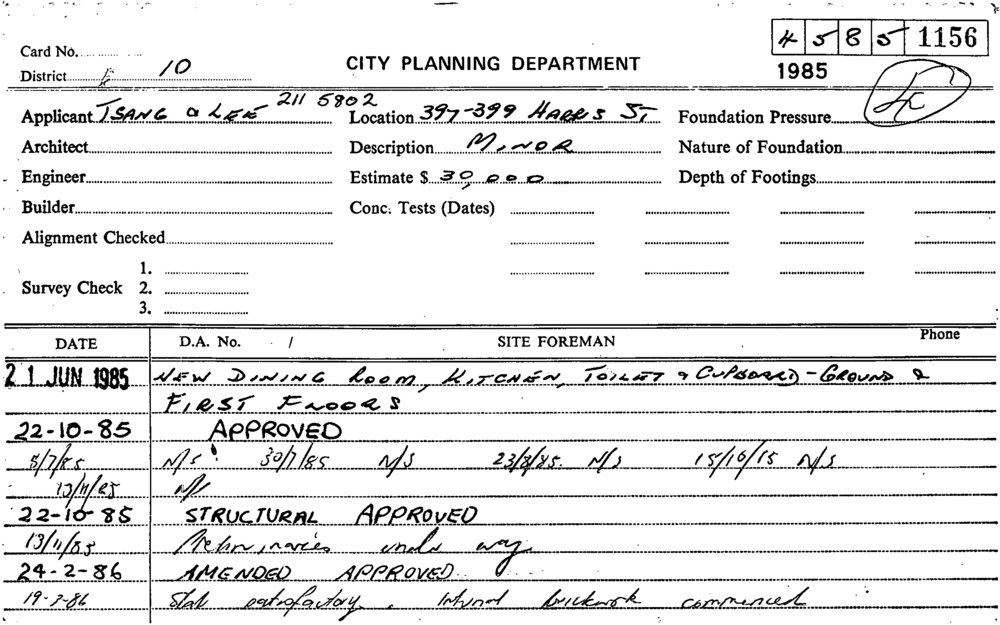 4 5 8 5 1156
Card No.
CITY PLANNING DEPARTMENT
District 10
1985
Applicant TSANG & LEE 211 5802 Location 397-399 HARRIS ST Foundation Pressure
Architect Description MINOR Nature of Foundation
Engineer Estimate $ 30,000 Depth of Footings
Builder Conc. Tests (Dates)
Alignment Checked
1.
Survey Check 2.
3.
DATE D.A. No. / SITE FOREMAN Phone
21 JUN 1985 NEW DINING ROOM, KITCHEN, TOILET & CUPBOARD - GROUND &
FIRST FLOORS
22-10-85 APPROVED
8/7/85 N/S 30/7/85 N/S 23/8/85. N/S 15/10/15 N/S
13/11/85 N/S
22-10-85 STRUCTURAL APPROVED
13/11/85 Preliminaries under way
24-2-86 AMENDED APPROVED
19-2-86 Slab satisfactory. Internal brickwork commenced